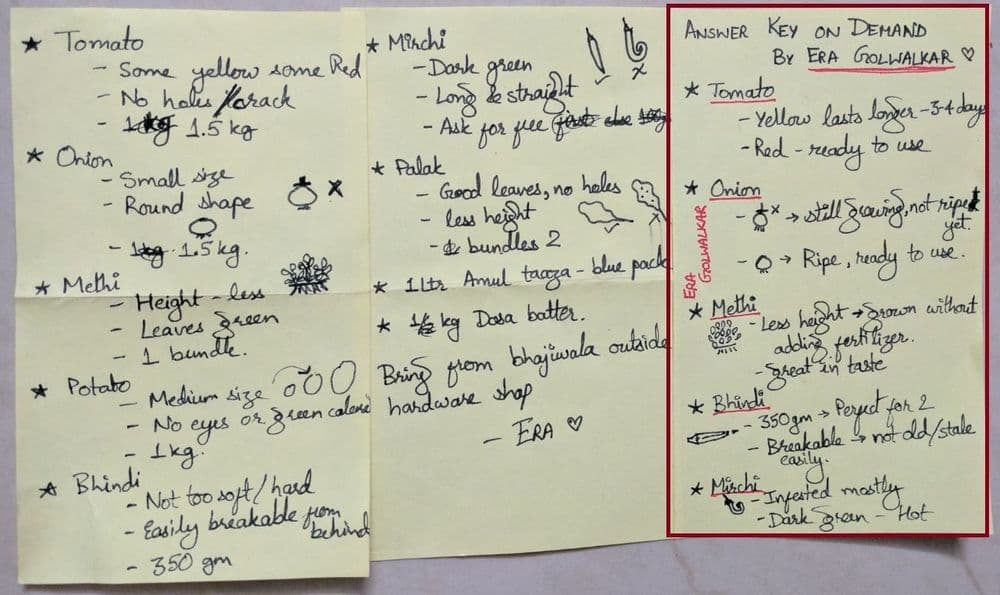 ★ Tomato
- Some yellow some Red
- No holes/crack
- 1kg 1.5 kg
★ Onion
- Small size
- Round shape
- 1kg 1.5 kg.
★ Methi
- Height - less
- Leaves green
- 1 bundle.
★ Potato
- Medium size
- No eyes or green colored
- 1kg.
★ Bhindi
- Not too soft/hard
- Easily breakable from
behind
- 350 gm
★ Mirchi
- Dark green
- Long & straight
- Ask for free first else 100g
★ Palak
- Good leaves, no holes
- less height
- bundles 2
★ 1 ltr Amul taaza - blue pack
★ 1/2 kg Dosa batter.
Bring from bhajiwala outside
hardware shop
- ERA ♡
ANSWER KEY ON DEMAND
BY ERA GOLWALKAR ♡
★ Tomato
- Yellow lasts longer - 3-4 days
- Red - ready to use
★ Onion
- x → still growing, not ripe
yet.
- → Ripe, ready to use.
ERA
GOLWALKAR
★ Methi
- Less height → grown without
adding fertilizer.
- great in taste
★ Bhindi
- 350gm → Perfect for 2
- Breakable → not old/stale
easily.
★ Mirchi
- Infested mostly
- Dark green - Hot